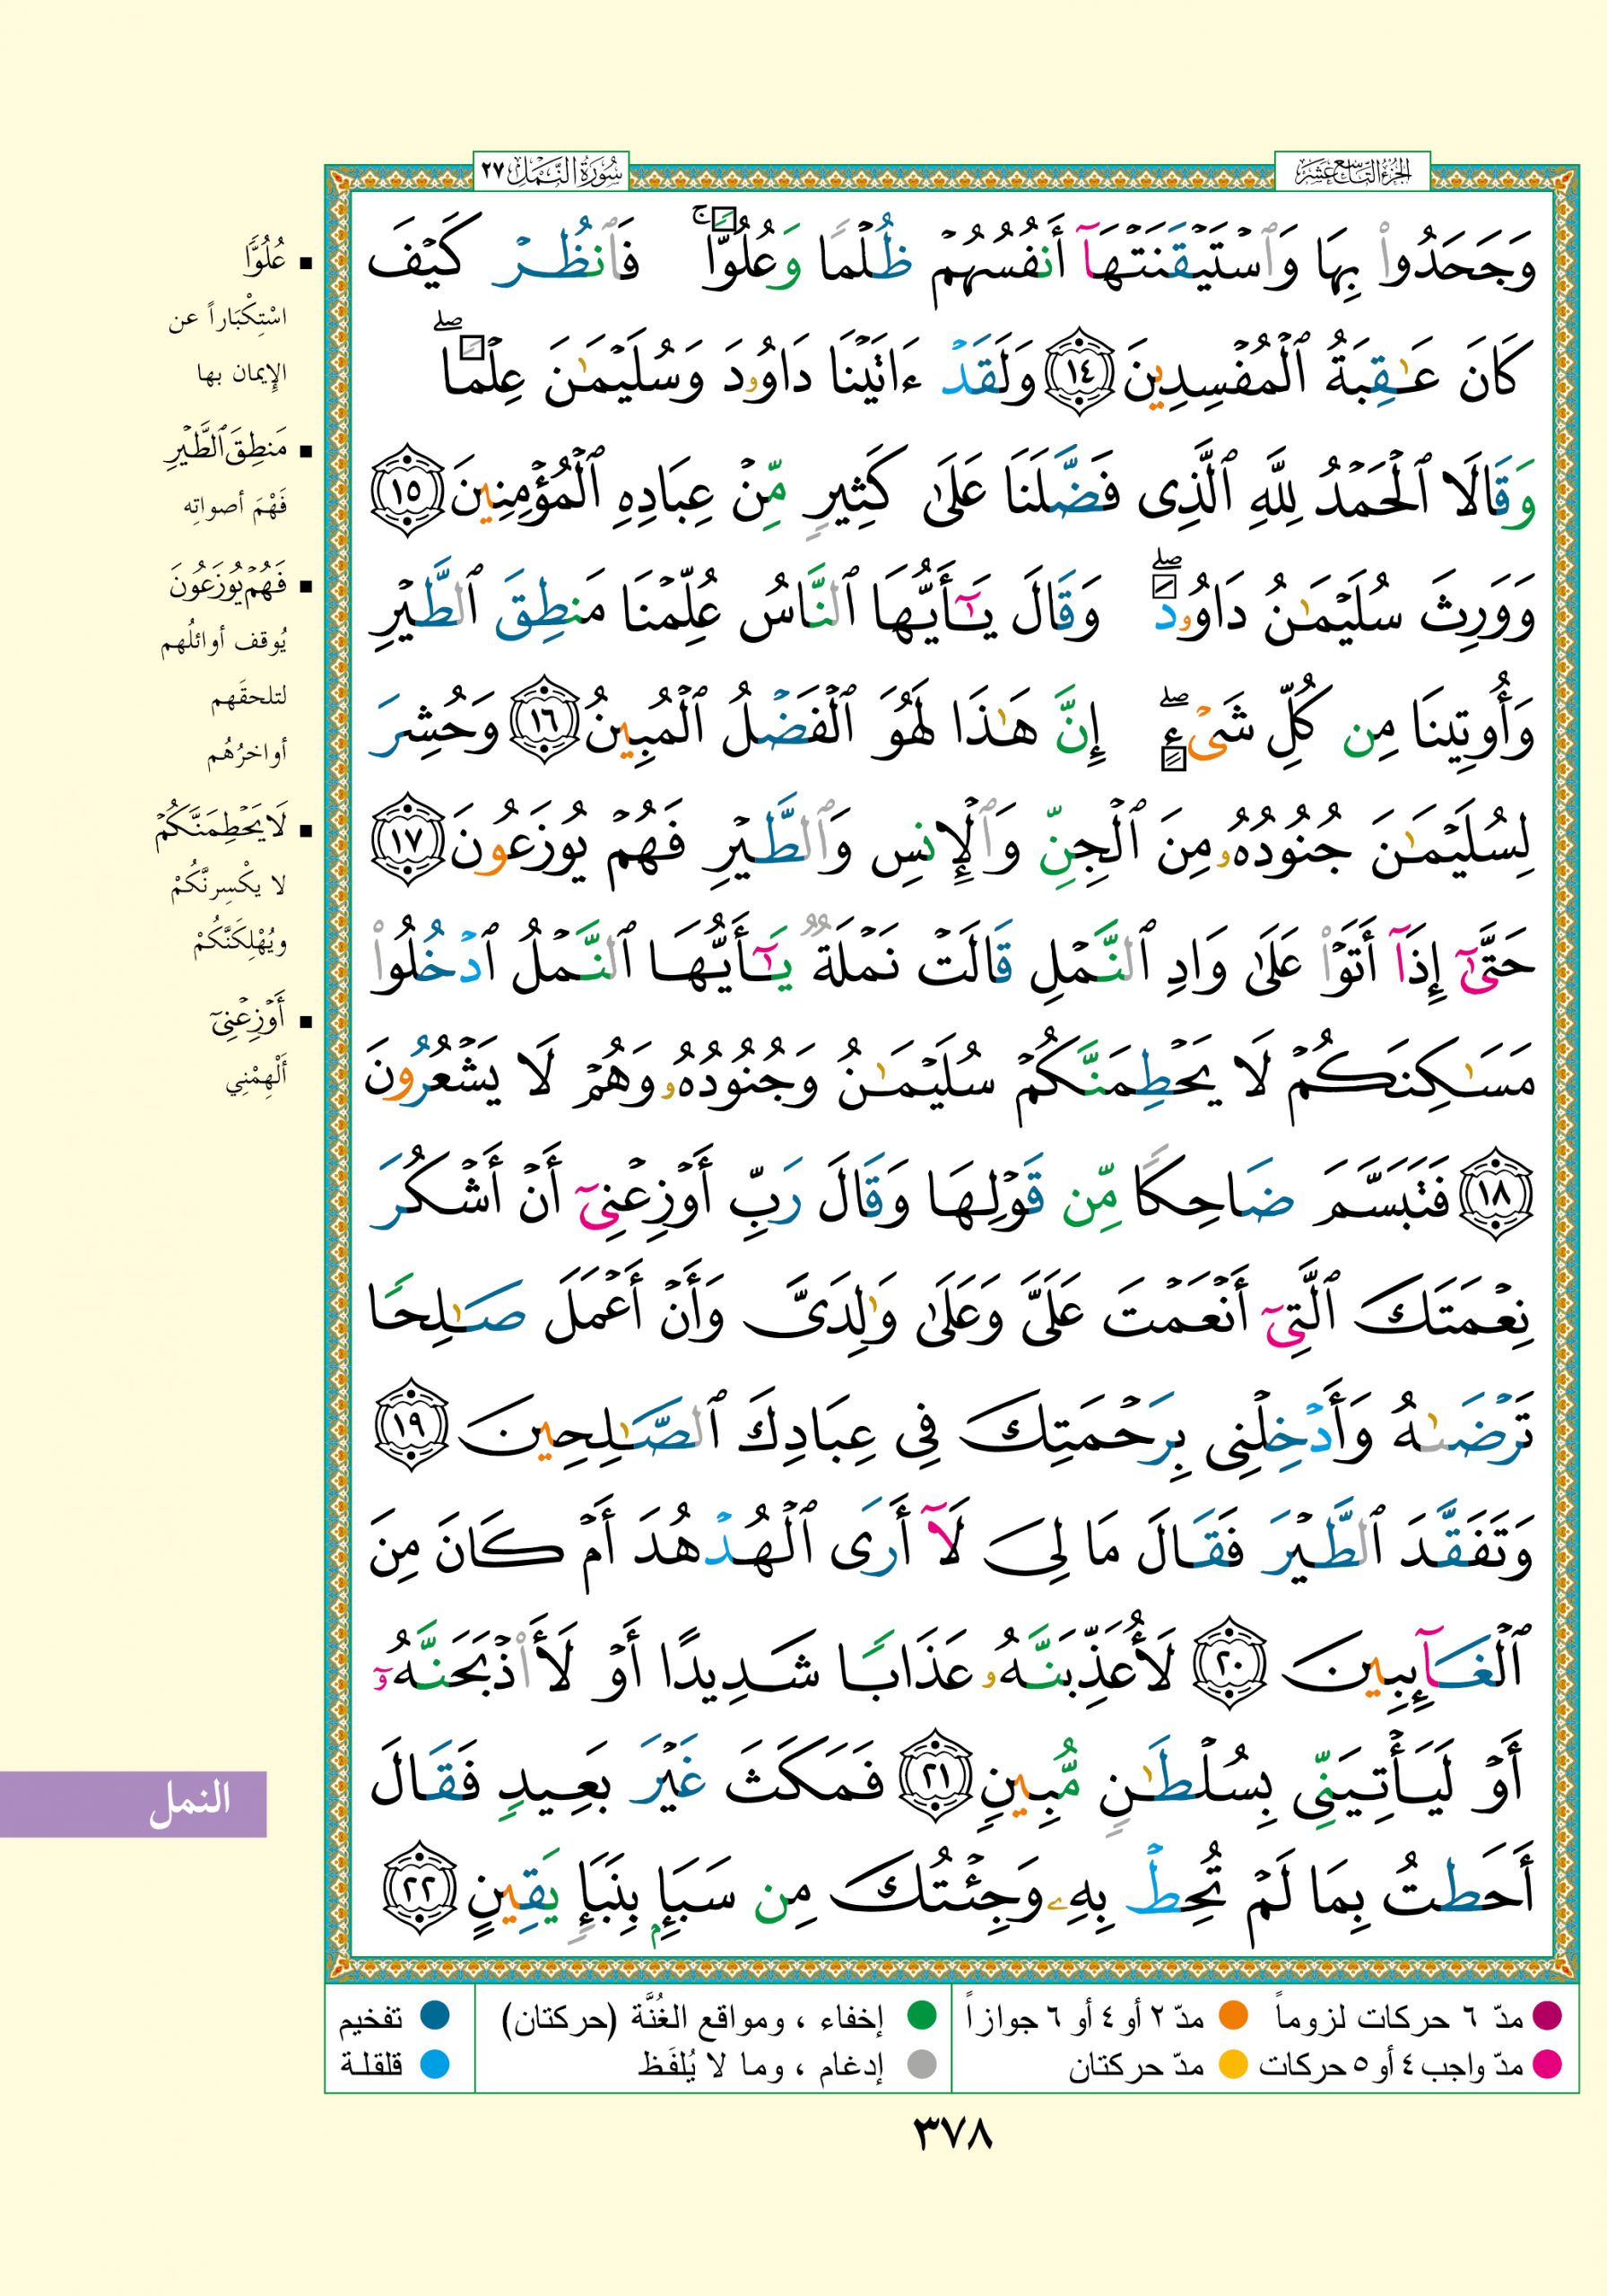 الجزء التاسع عشر
سورة النمل ٢٧
وَجَحَدُوا۟ بِهَا وَٱسْتَيْقَنَتْهَآ أَنفُسُهُمْ ظُلْمًا وَعُلُوًّا ۚ فَٱنظُرْ كَيْفَ
كَانَ عَـٰقِبَةُ ٱلْمُفْسِدِينَ ١٤ وَلَقَدْ ءَاتَيْنَا دَاوُۥدَ وَسُلَيْمَـٰنَ عِلْمًا ۖ
وَقَالَا ٱلْحَمْدُ لِلَّهِ ٱلَّذِى فَضَّلَنَا عَلَىٰ كَثِيرٍ مِّنْ عِبَادِهِ ٱلْمُؤْمِنِينَ ١٥
وَوَرِثَ سُلَيْمَـٰنُ دَاوُۥدَ ۖ وَقَالَ يَـٰٓأَيُّهَا ٱلنَّاسُ عُلِّمْنَا مَنطِقَ ٱلطَّيْرِ
وَأُوتِينَا مِن كُلِّ شَىْءٍ ۖ إِنَّ هَـٰذَا لَهُوَ ٱلْفَضْلُ ٱلْمُبِينُ ١٦ وَحُشِرَ
لِسُلَيْمَـٰنَ جُنُودُهُۥ مِنَ ٱلْجِنِّ وَٱلْإِنسِ وَٱلطَّيْرِ فَهُمْ يُوزَعُونَ ١٧
حَتَّىٰٓ إِذَآ أَتَوْا۟ عَلَىٰ وَادِ ٱلنَّمْلِ قَالَتْ نَمْلَةٌ يَـٰٓأَيُّهَا ٱلنَّمْلُ ٱدْخُلُوا۟
مَسَـٰكِنَكُمْ لَا يَحْطِمَنَّكُمْ سُلَيْمَـٰنُ وَجُنُودُهُۥ وَهُمْ لَا يَشْعُرُونَ
١٨ فَتَبَسَّمَ ضَاحِكًا مِّن قَوْلِهَا وَقَالَ رَبِّ أَوْزِعْنِىٓ أَنْ أَشْكُرَ
نِعْمَتَكَ ٱلَّتِىٓ أَنْعَمْتَ عَلَىَّ وَعَلَىٰ وَٰلِدَىَّ وَأَنْ أَعْمَلَ صَـٰلِحًا
تَرْضَىٰهُ وَأَدْخِلْنِى بِرَحْمَتِكَ فِى عِبَادِكَ ٱلصَّـٰلِحِينَ ١٩
وَتَفَقَّدَ ٱلطَّيْرَ فَقَالَ مَا لِىَ لَآ أَرَى ٱلْهُدْهُدَ أَمْ كَانَ مِنَ
ٱلْغَآئِبِينَ ٢٠ لَأُعَذِّبَنَّهُۥ عَذَابًا شَدِيدًا أَوْ لَأَا۟ذْبَحَنَّهُۥٓ
أَوْ لَيَأْتِيَنِّى بِسُلْطَـٰنٍ مُّبِينٍ ٢١ فَمَكَثَ غَيْرَ بَعِيدٍ فَقَالَ
أَحَطتُ بِمَا لَمْ تُحِطْ بِهِۦ وَجِئْتُكَ مِن سَبَإٍۭ بِنَبَإٍ يَقِينٍ ٢٢
▪ عُلُوًّا
اسْتِكْبَاراً عن
الإيمان بها
▪ مَنطِقَ ٱلطَّيْرِ
فَهْمَ أصواتِه
▪ فَهُمْ يُوزَعُونَ
يُوقف أوائلُهم
لتلحقَهم
أواخرُهُم
▪ لَا يَحْطِمَنَّكُمْ
لا يكْسِرنَّكُمْ
ويُهْلِكَنَّكُمْ
▪ أَوْزِعْنِىٓ
أَلْهِمْنِي
النمل
مدّ ٦ حركات لزوماً ● مدّ ٢ أو ٤ أو ٦ جوازاً ● إخفاء ، ومواقع الغُنَّة (حركتان) ● تفخيم
مدّ واجب ٤ أو ٥ حركات ● مدّ حركتان ● إدغام ، وما لا يُلفَظ ● قلقلة
٣٧٨